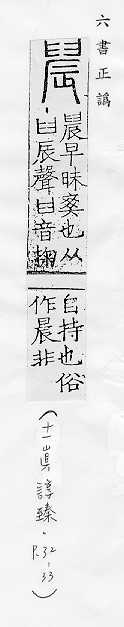 六書正譌
䢅
䢅早昧爽也从
臼辰聲臼音掬
自持也俗
作晨非
(十一眞諄臻. P.32-33)